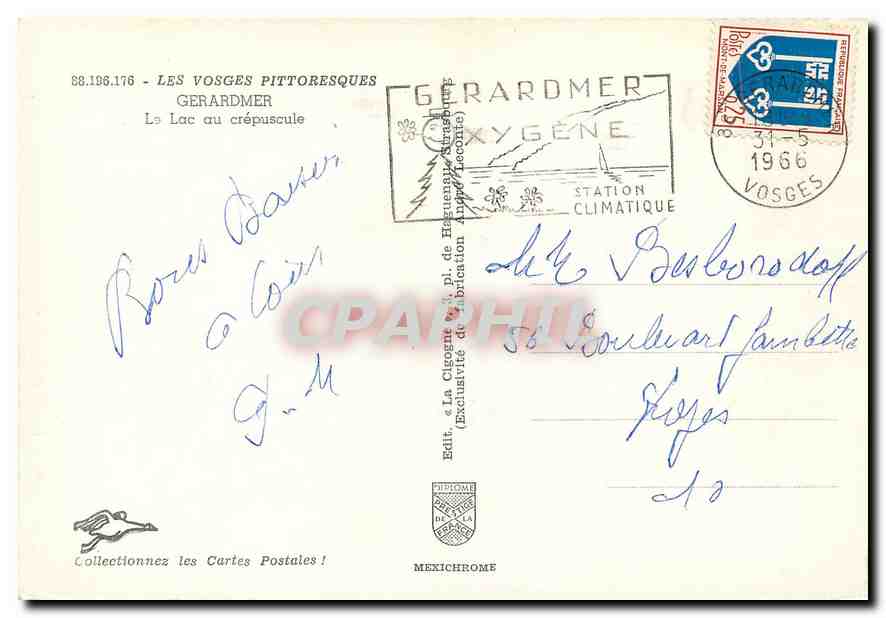 88.196.176 - LES VOSGES PITTORESQUES
GERARDMER
Le Lac au crépuscule
Bons Baisers
à tous
Edit. « La Cigogne », pl. de Haguenau, Strasbourg
(Exclusivité de fabrication André Leconte)
GERARDMER
OXYGÈNE
STATION
CLIMATIQUE
POSTES
REPUBLIQUE FRANÇAISE
MONT-DE-MARSAN
0,25
GERARDMER
31-5
1966
VOSGES
CPAPHIL
Besborodoff
56 Boulevard Gambetta
Troyes
10
DIPLOME
PRESTIGE
DE LA
FRANCE
Collectionnez les Cartes Postales !
MEXICHROME